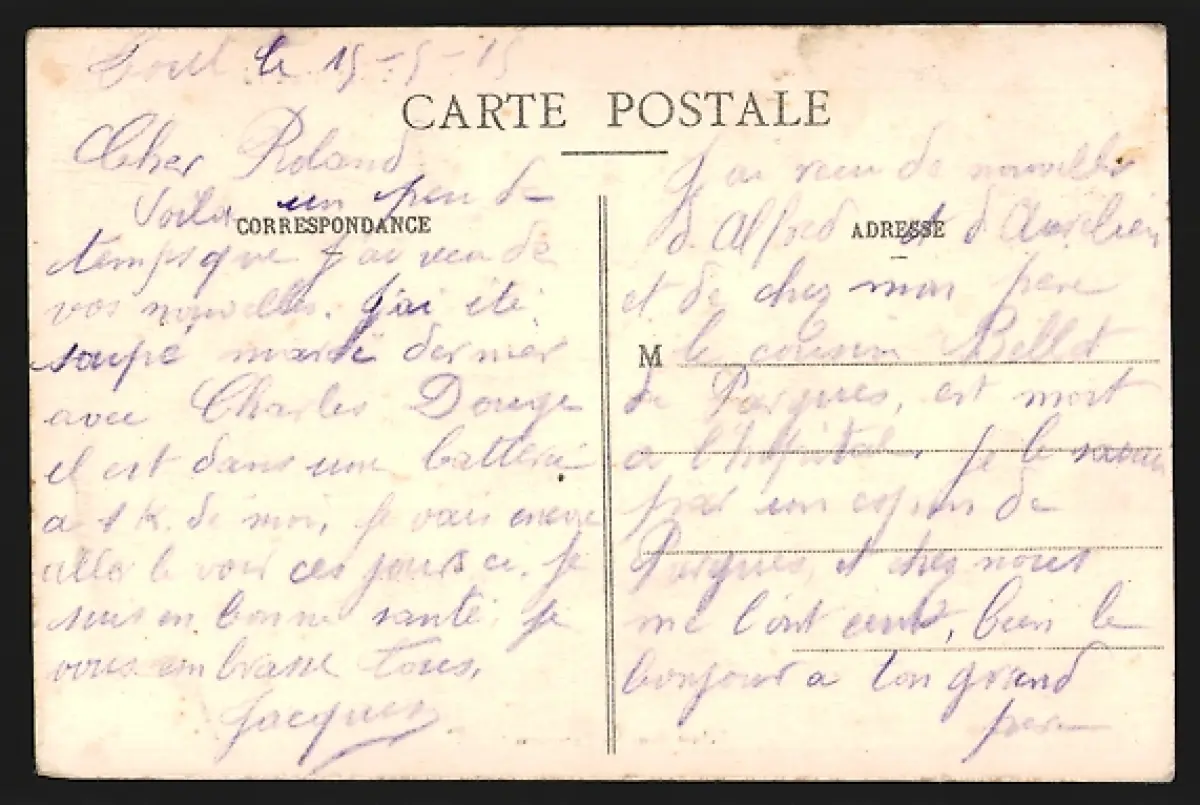 le 15-5-15
CARTE POSTALE
Cher Roland
Voila un peu de
CORRESPONDANCE
temps que j'ai recu de
vos nouvelles. J'ai été
soupé mardi dernier
avec Charles
il est dans une batterie
a 1 k. de moi, je vais encore
aller le voir ces jours ci. je
suis en bonne santé. je
vous embrasse tous.
Jacques
J'ai recu de nouvelles
d'Alfred et d'Aurelien
ADRESSE
et de chez mon pere
M
le cousin Bellot
de Pargues, est mort
a l'hopital. je le savais
par un copin de
Pargues, et chez nous
me l'ont ecrit, bien le
bonjour a ton grand
pere